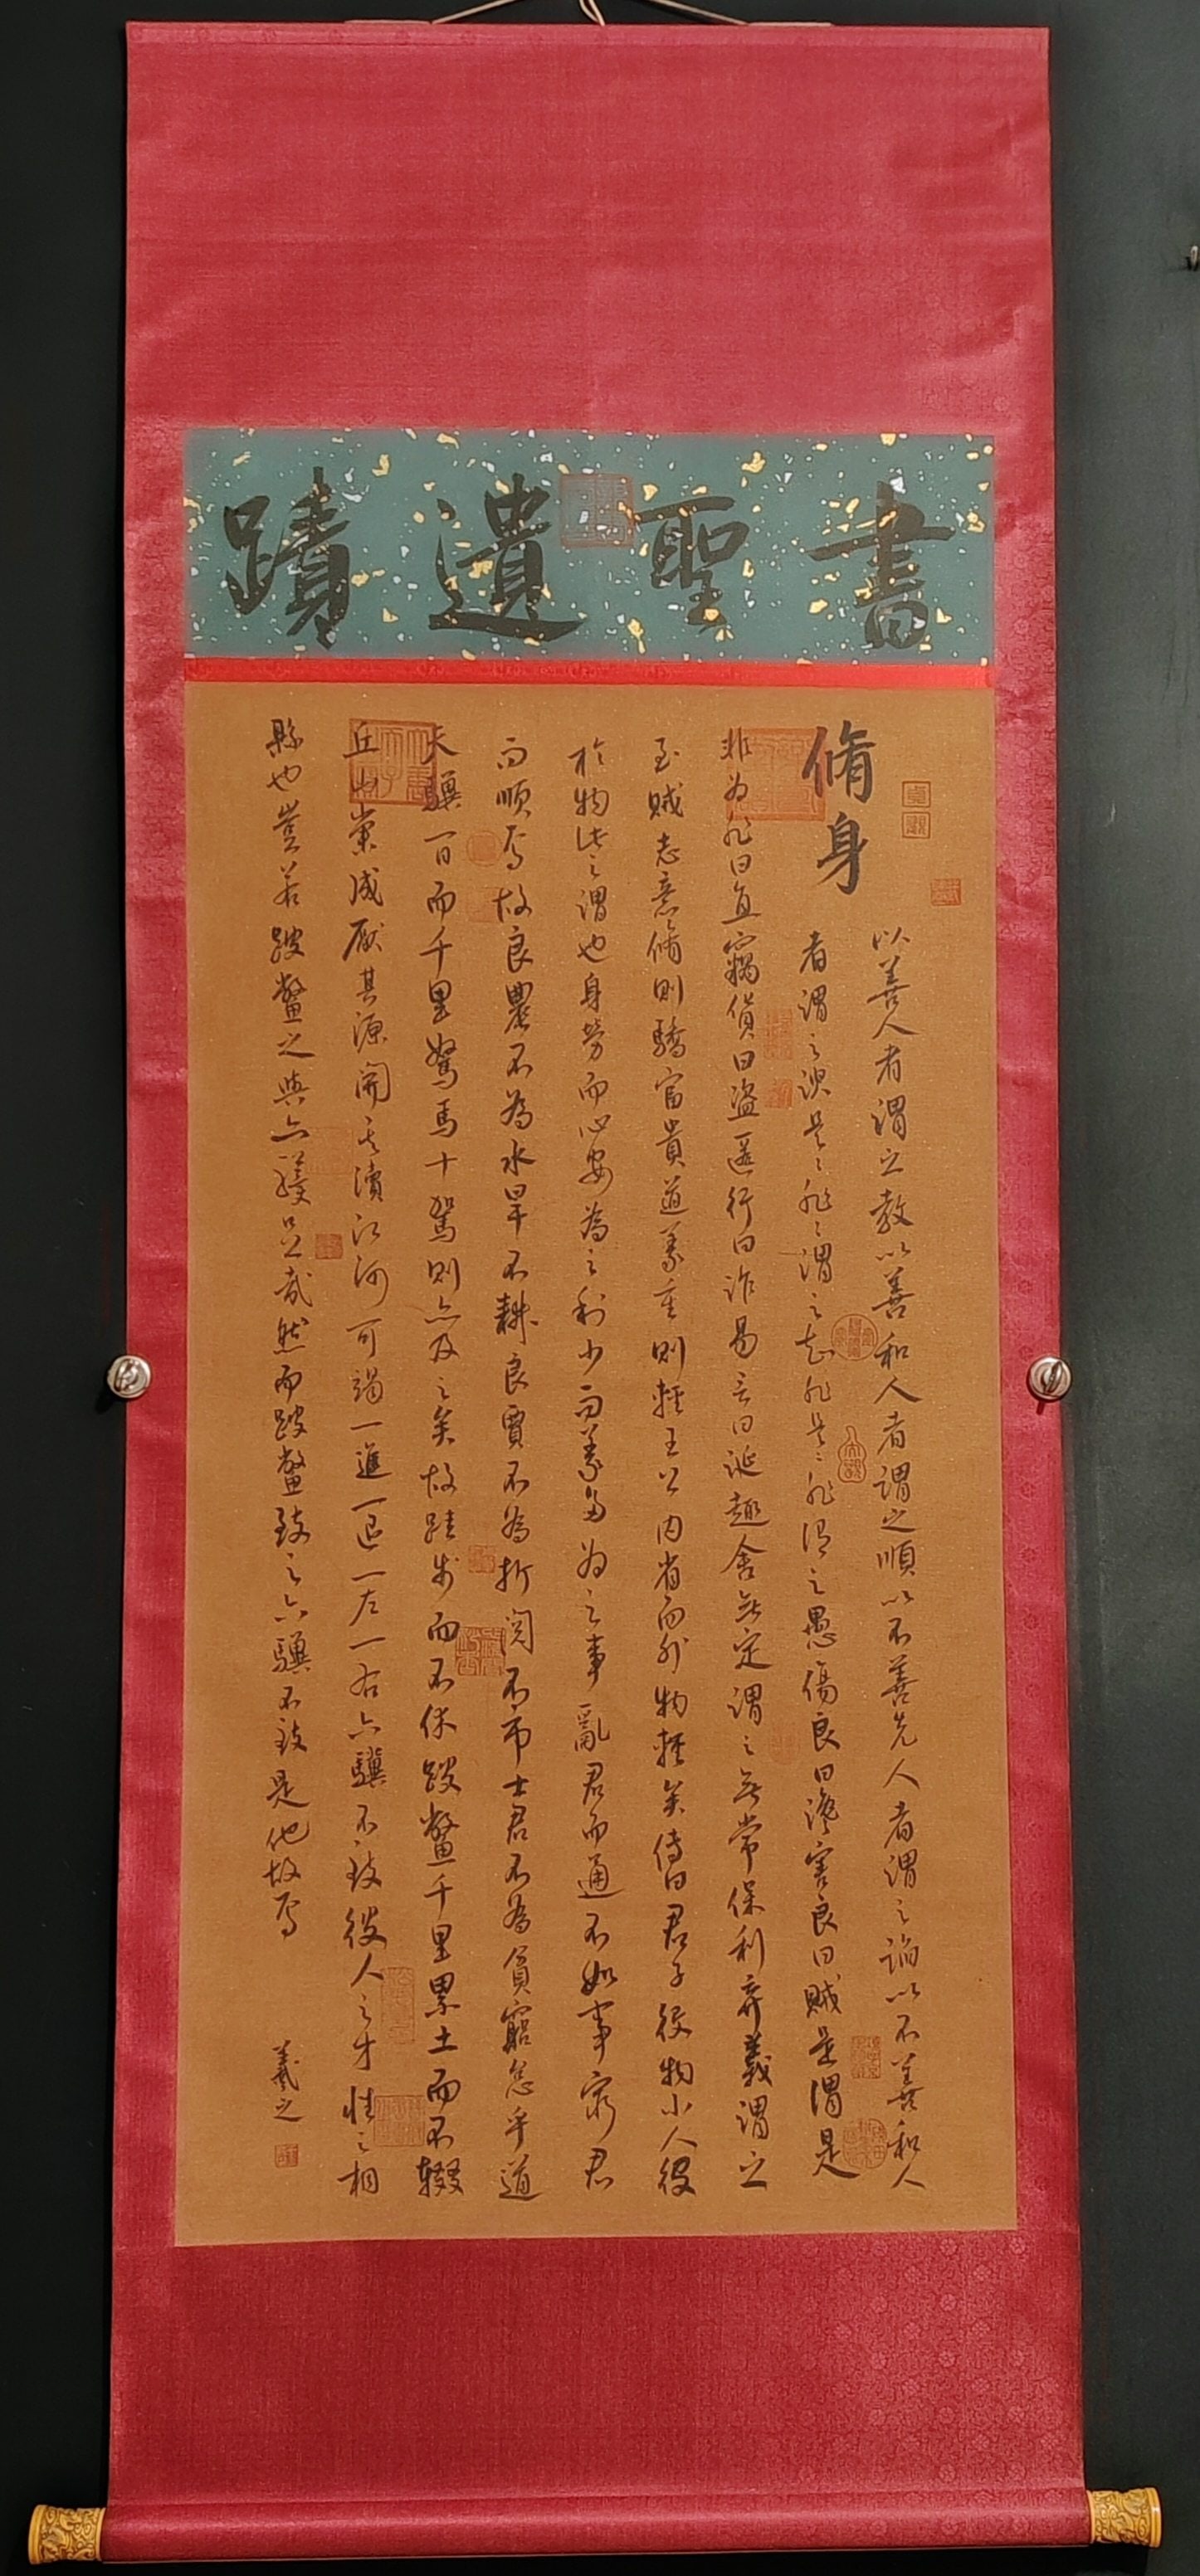 書聖遺蹟
脩身
以善人者謂之教以善和人者謂之順以不善先人者謂之諂以不善和人
者謂之諛是是非非謂之知非是是非謂之愚傷良曰讒害良曰賊是謂是
非為非曰直竊貨曰盜匿行曰詐易言曰誕趣舍無定謂之無常保利弃義謂之
至賊志意脩則驕富貴道義重則輕王公內省而外物輕矣傳曰君子役物小人役
於物此之謂也身勞而心安為之利少而義多為之事亂君而通不如事窮君
而順焉故良農不為水旱不耕良賈不為折閱不市士君不為貧窮怠乎道
夫驥一日而千里駑馬十駕則亦及之矣故跬步而不休跛鱉千里累土而不輟
丘山崇成厭其源開其瀆江河可竭一進一退一左一右六驥不致彼人之才性之相
縣也豈若跛鱉之與六驥足哉然而跛鱉致之六驥不致是他故焉
羲之